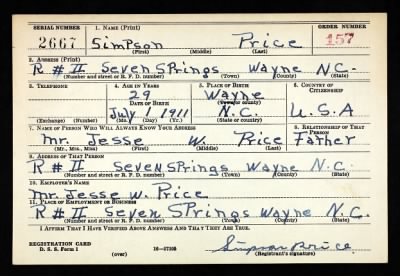 SERIAL NUMBER 1. NAME (Print) ORDER NUMBER
2667 Simpson Price 157
(First) (Middle) (Last)
2. ADDRESS (Print)
R # II Seven Springs Wayne N.C.
(Number and street or R. F. D. number) (Town) (County) (State)
3. TELEPHONE 4. AGE IN YEARS 5. PLACE OF BIRTH 6. COUNTRY OF CITIZENSHIP
29 Wayne
DATE OF BIRTH (Town or county)
July 1 1911 N.C. U.S.A
(Exchange) (Number) (Mo.) (Day) (Yr.) (State or country)
7. NAME OF PERSON WHO WILL ALWAYS KNOW YOUR ADDRESS 8. RELATIONSHIP OF THAT PERSON
Mr. Jesse W. Price Father
(Mr., Mrs., Miss) (First) (Middle) (Last)
9. ADDRESS OF THAT PERSON
R # II Seven Springs Wayne N.C.
(Number and street or R. F. D. number) (Town) (County) (State)
10. EMPLOYER'S NAME
Mr. Jesse W. Price
11. PLACE OF EMPLOYMENT OR BUSINESS
R # II Seven Springs Wayne N.C.
(Number and street or R. F. D. number) (Town) (County) (State)
I AFFIRM THAT I HAVE VERIFIED ABOVE ANSWERS AND THAT THEY ARE TRUE.
REGISTRATION CARD
D. S. S. Form 1 16—17105 Simpson Price
(over) (Registrant's signature)